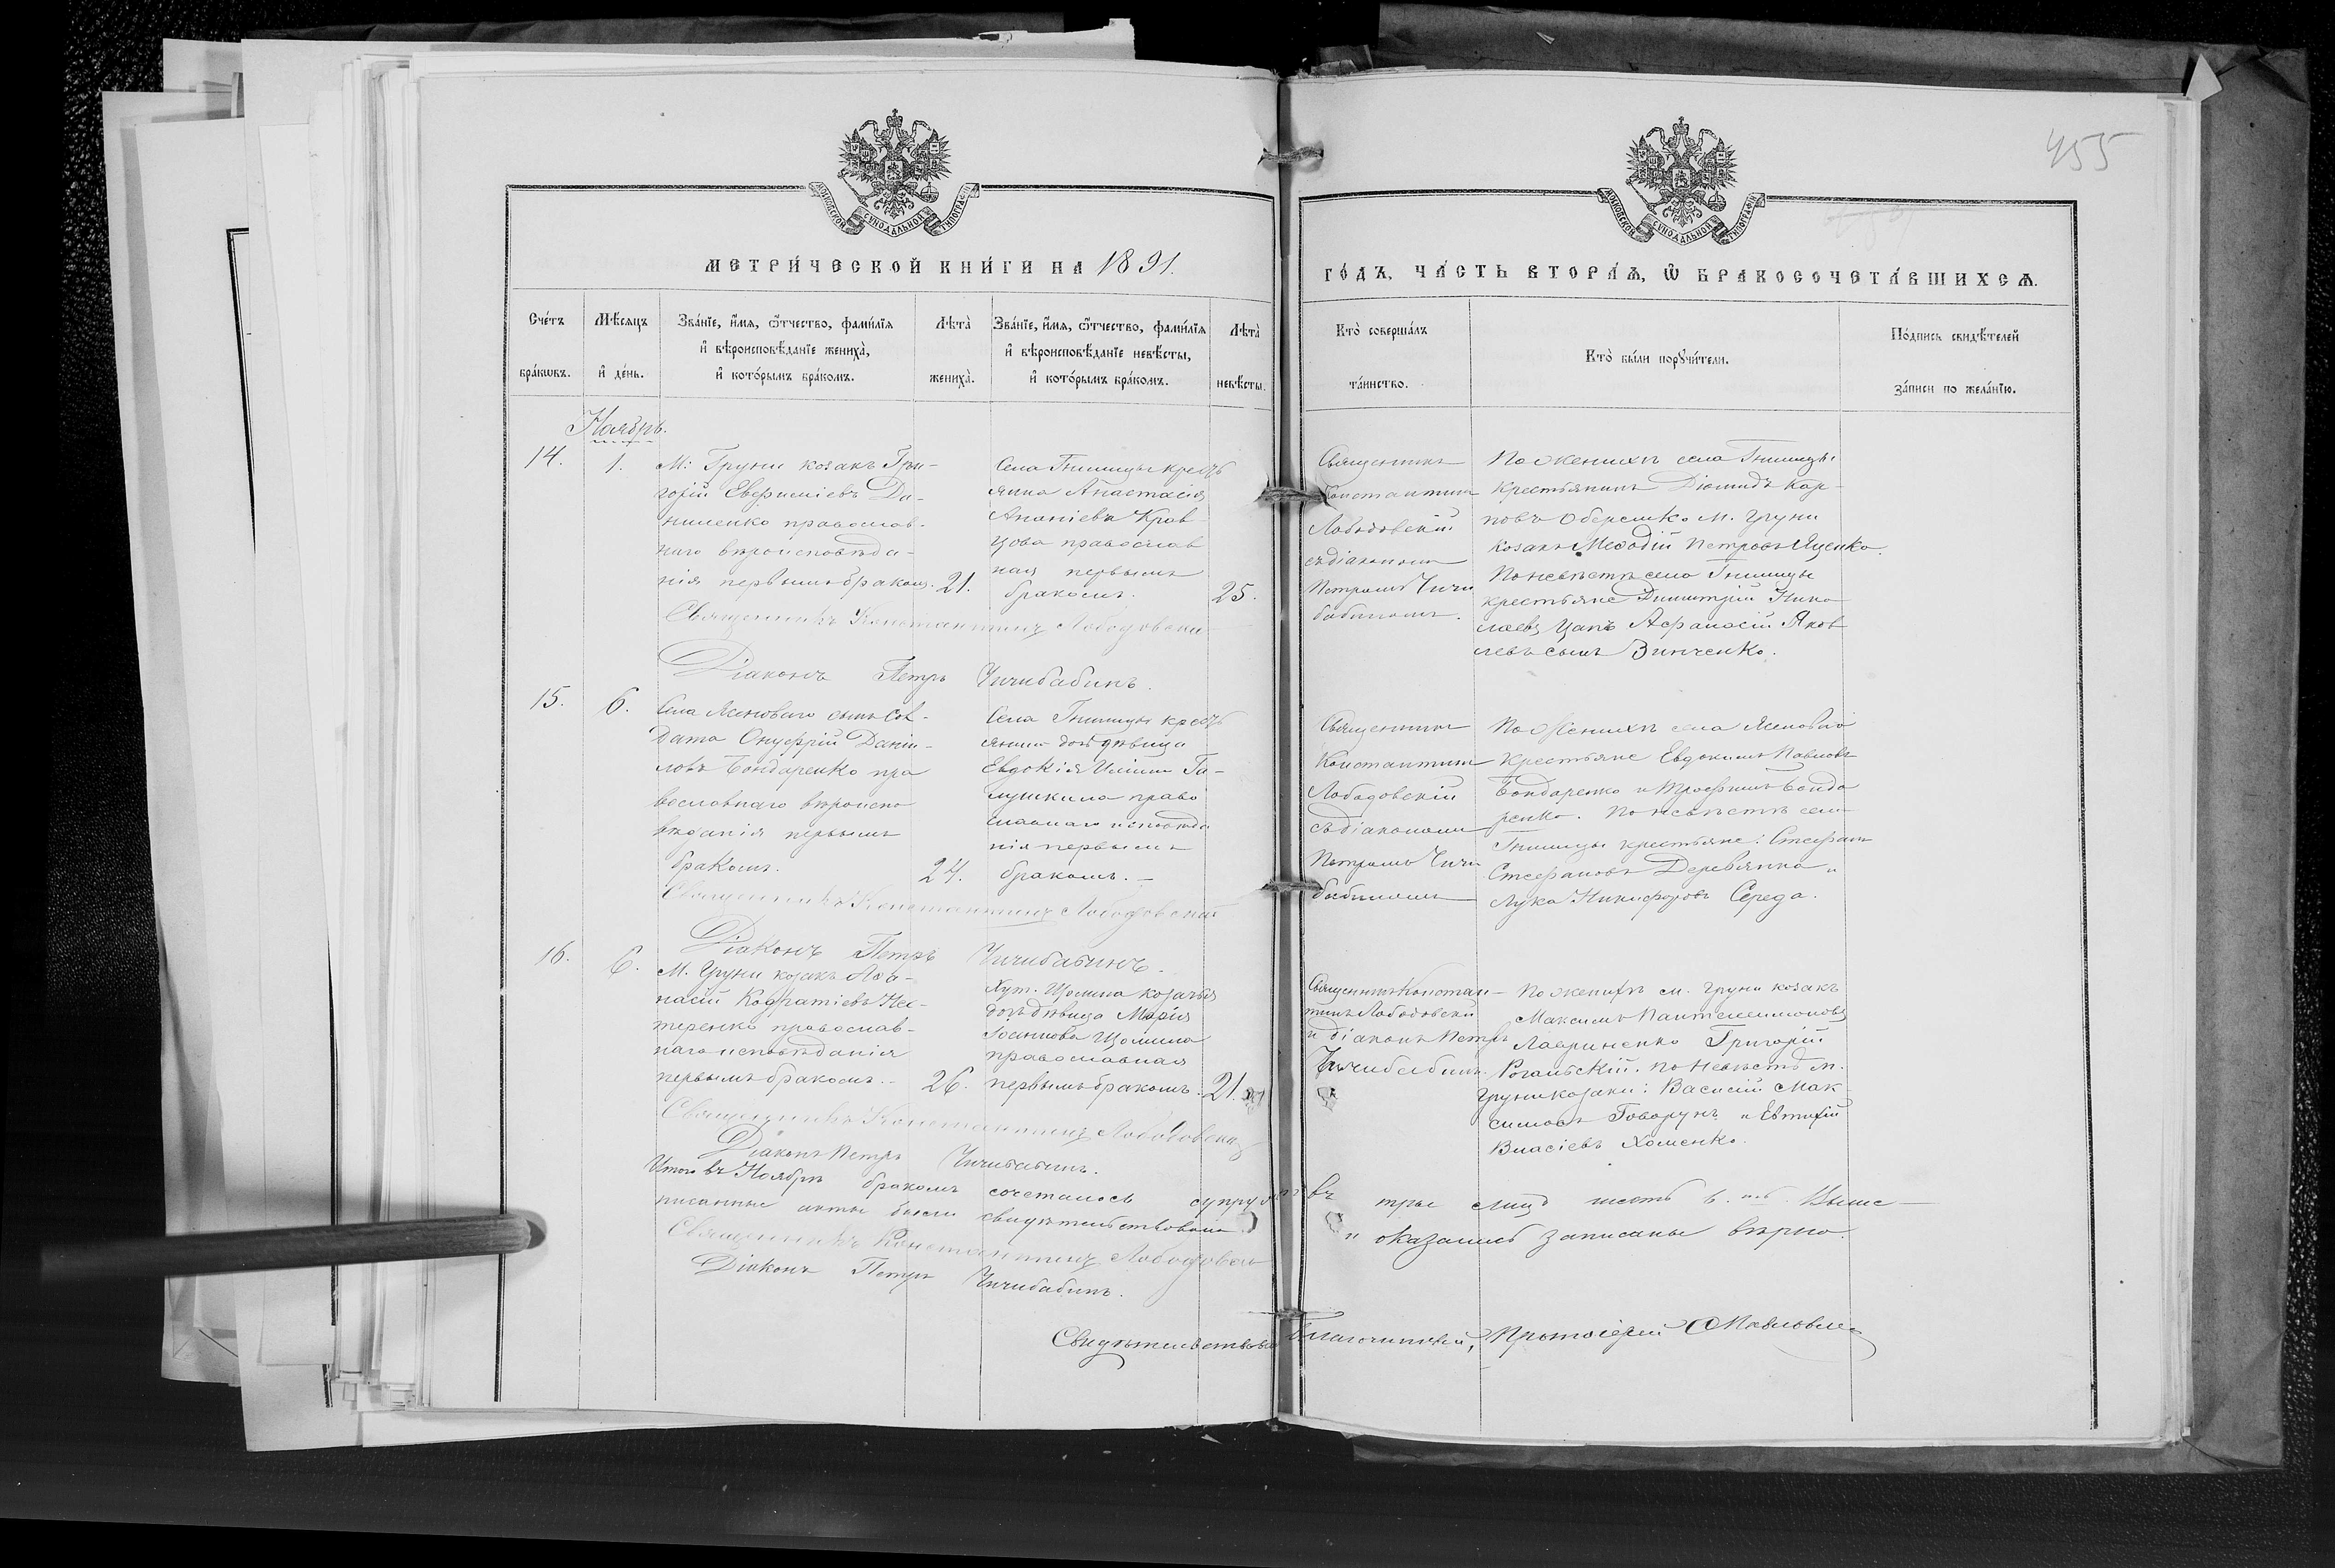 455
МОСКОВСКОЙ СУНОДАЛЬНОЙ ТИПОГРАФІИ
МОСКОВСКОЙ СУНОДАЛЬНОЙ ТИПОГРАФІИ
МЕТРИ́ЧЕСКОЙ КНИ́ГИ НА 1891.
ГО́ДЪ, ЧА́СТЬ ВТОРА́Ѧ, Ѽ БРАКОСОЧЕТА́ВШИХСѦ.
Сче́тъ бра́кѡвъ.
Мѣ́сѧцъ и҆ де́нь.
Зва́нїе, и҆́мѧ, ѻ҆́тчество, фами́лїѧ
и҆ вѣроисповѣ́данїе жениха̀,
и҆ кото́рымъ бра́комъ.
Лѣта̀ жениха̀.
Зва́нїе, и҆́мѧ, ѻ҆́тчество, фами́лїѧ
и҆ вѣроисповѣ́данїе невѣ́сты,
и҆ кото́рымъ бра́комъ.
Лѣта̀ невѣ́сты.
Кто̀ соверша́лъ
та́инство.
Кто̀ бы́ли порꙋчи́тели.
По́дпись свидѣ́телей
за́писи по жела́нїю.
Ноябрь.
14.
1.
М: Груни козакъ Гри-
горій Евфиміевъ Да-
ниленко православ-
наго вѣроисповѣда-
нія первымъ бракомъ.
21.
Села Гнилицы кресть
янка Анастасія
Ананіева Крав
цова православ
ная первымъ
бракомъ.
25.
Священникъ
Константинъ
Лободовскій
съ діакономъ
Петромъ Чичи
бабинымъ.
По женихѣ села Гнилицы
крестьянинъ Діомидъ Кар-
повъ Оберемко м. Груни
козакъ Меѳодій Петровъ Яценко.
По невѣстѣ села Гнилицы
крестьяне Димитрій Нико
лаевъ Цапъ Аѳанасій Яков
левъ сынъ Зинченко.
Священникъ Константинъ Лободовскій
Діаконъ Петръ Чичибабинъ.
15.
6.
Села Ясеноваго сынъ сол-
дата Онуфрій Даніи-
ловъ Бондаренко пра
вославнаго вѣроиспо
вѣданія первымъ
бракомъ.
27.
Села Гнилицы кресть
янина дочь дѣвица
Евдокія Иліина Га-
лушкина право
славнаго исповѣда
нія первымъ
бракомъ. —
Священникъ
Константинъ
Лободовскій
съ діакономъ
Петромъ Чичи
бабинымъ
По женихѣ села Ясеноваго
крестьяне Евдокимъ Павловъ
Бондаренко и Трофимъ Бонда
ренко. По невѣстѣ села
Гнилицы крестьяне: Стефанъ
Стефановъ Деревянко и
Лука Никифоровъ Середа.
Священникъ Константинъ Лободовскій
Діаконъ Петръ Чичибабинъ.
16.
6.
М. Груни козакъ Аѳа-
насій Кодратіевъ Нес-
теренко православ-
наго исповѣданія
первымъ бракомъ. —
26.
Хут. Шомина козачья
дочь дѣвица Марія
Іоаннова Шомина
православная
первымъ бракомъ.
21.
Священникъ Констан-
тинъ Лободовскій
и діаконъ Петръ
Чичибабинъ.
По женихѣ м. Груни козакъ
Максимъ Пантелеимоновъ
Лавриненко Григорій
Рогальскій. По невѣстѣ м.
Груни козаки: Василій Мак-
симовъ Говорунъ и Евтихій
Власіевъ Хоменко.
Священникъ Константинъ Лободовскій
Діаконъ Петръ Чичибабинъ.
Итого въ Ноябрѣ бракомъ сочеталось супружествъ три лицъ шесть 6. Выше-
писанные акты были свидѣтельствованы и оказались записаны вѣрно.
Священникъ Константинъ Лободовскій
Діаконъ Петръ Чичибабинъ.
Свидѣтельствовалъ Благочинный, Протоіерей